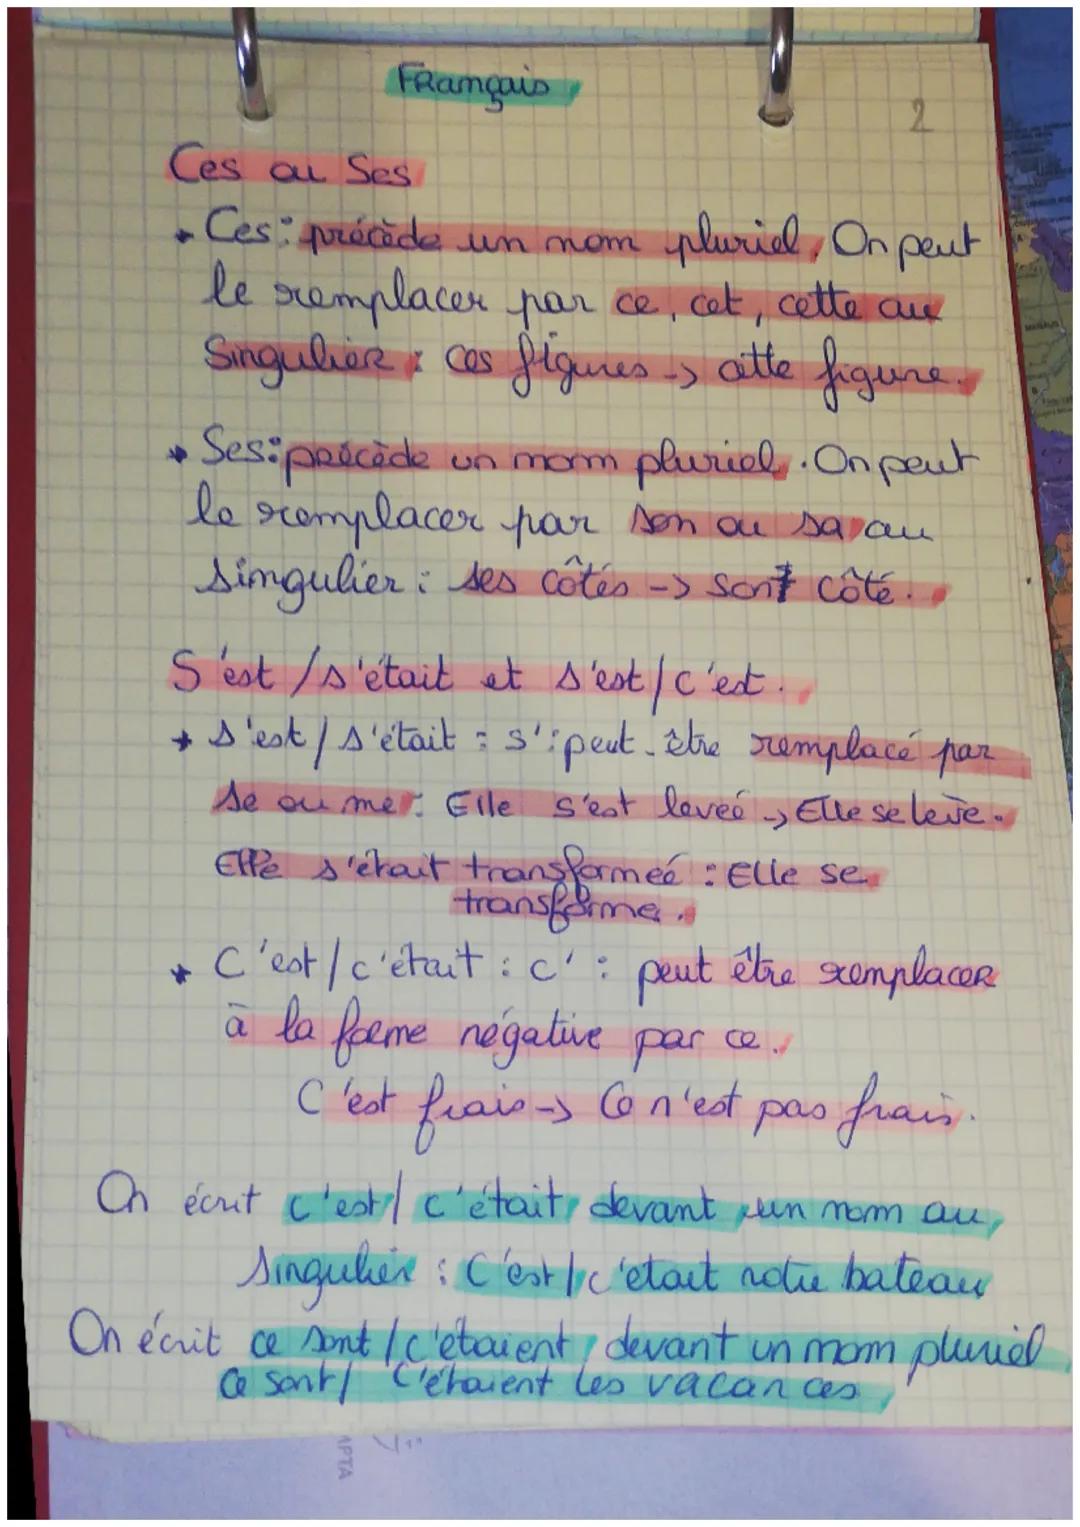 Français
2
Ces ou Ses
Ces : précède un nom pluriel. On peut
le remplacer par ce, cet, cette au
Singulier : ces figures -> cette figure.
Ses : précède un nom pluriel. On peut
le remplacer par son ou sa au
singulier : ses côtés -> son côté.
S'est / s'était et s'est / c'est.
s'est / s'était : s' : peut-être remplacé par
se ou me : Elle s'est leveé -> Elle se lève.
Elle s'était transformeé : Elle se
transforme.
C'est / c'était : c' : peut être remplacer
à la forme négative par ce.
C'est frais -> Ce n'est pas frais.
On écrit c'est / c'était, devant un nom au
Singulier : C'est / c'etait notre bateau
On écrit ce sont / c'étaient, devant un nom pluriel
Ce sont / C'étaient les vacances
APTA